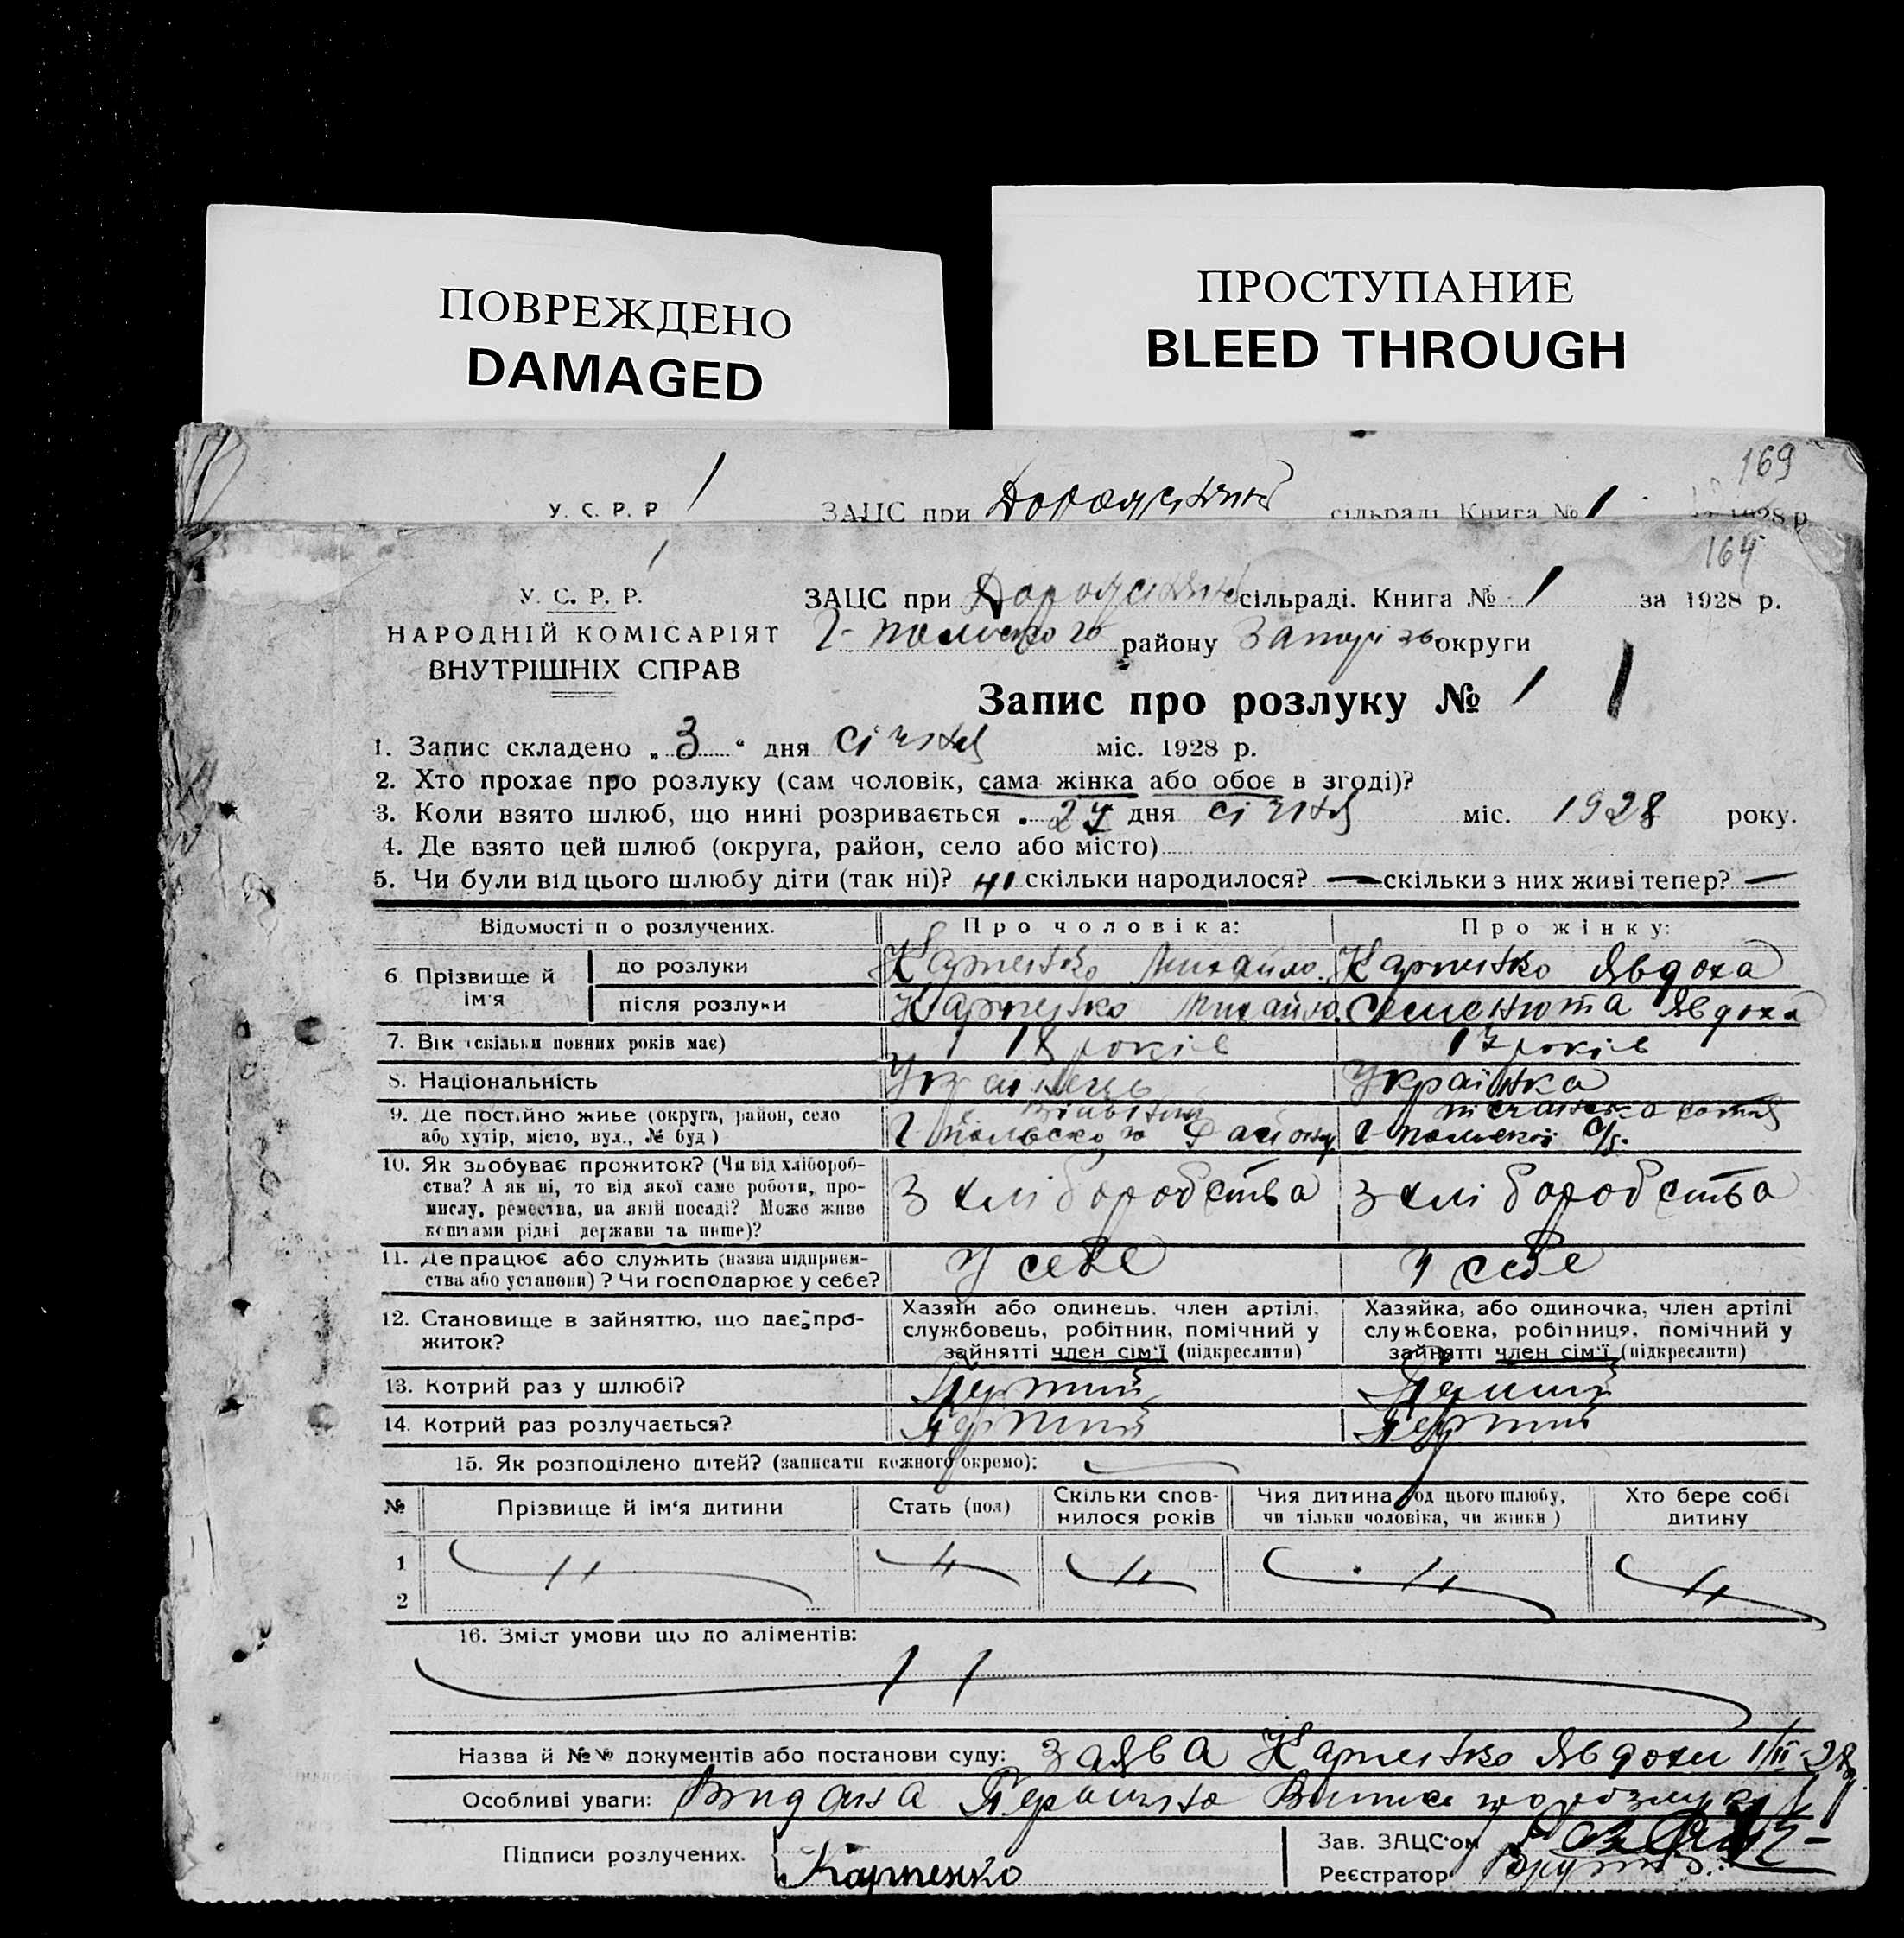 ПОВРЕЖДЕНО
DAMAGED
ПРОСТУПАНИЕ
BLEED THROUGH
169
У. С. Р. Р. 1 ЗАЦС при сільраді. Книга № 1 1928 р.
164
У. С. Р. Р.
НАРОДНІЙ КОМІСАРІЯТ
ВНУТРІШНІХ СПРАВ
ЗАЦС при сільраді. Книга № 1 за 1928 р.
Г-польского району округи
Запис про розлуку № 1 1
1. Запис складено „ 3 “ дня січня міс. 1928 р.
2. Хто прохає про розлуку (сам чоловік, сама жінка або обоє в згоді)?
3. Коли взято шлюб, що нині розривається дня січня міс. 1928 року.
4. Де взято цей шлюб (округа, район, село або місто)
5. Чи були від цього шлюбу діти (так ні)? ні скільки народилося? — скільки з них живі тепер? —
Відомості п о розлучених. Про чоловіка: Про жінку:
6 Прізвище й ім'я
до розлуки Карпенко Михайло Карпенко Явдоха
після розлуки Карпенко Михайло Семенюта Явдоха
7. Вік (скільки повних років має) 18 років 17 років
8. Національність Українець Українка
9. Де постійно живе (округа, район, село
або хутір, місто, вул., № буд) Г-польского району Г-польскої с/р.
10. Як здобуває прожиток? (Чи від хлібороб-
ства? А як ні, то від якої саме роботи, про-
мислу, ремества, на якій посаді? Може живе
коштами рідні держави та инше)? З хліборобства З хліборобства
11. Де працює або служить (назва підприєм-
ства або установи)? Чи господарює у себе? У себе У себе
12. Становище в зайняттю, що дає про-
житок?
Хазяїн або одинець, член артілі,
службовець, робітник, помічний у
зайнятті член сім'ї (підкреслити)
Хазяйка, або одиночка, член артілі
службовка, робітниця, помічний у
зайнятті член сім'ї (підкреслити)
13. Котрий раз у шлюбі? Перший Перший
14. Котрий раз розлучається? Перший Перший
15. Як розподілено дітей? (записати кожного окремо): —
№ Прізвище й ім'я дитини Стать (пол) Скільки спов-
нилося років Чия дитина (од цього шлюбу,
чи тільки чоловіка, чи жінки) Хто бере собі
дитину
1
2
16. Зміст умови що до аліментів:
Назва й №№ документів або постанови суду: Заява Карпенко Явдохи 1/II-28
Особливі уваги: Видана
Підписи розлучених. Карпенко
Зав. ЗАЦС'ом
Реєстратор